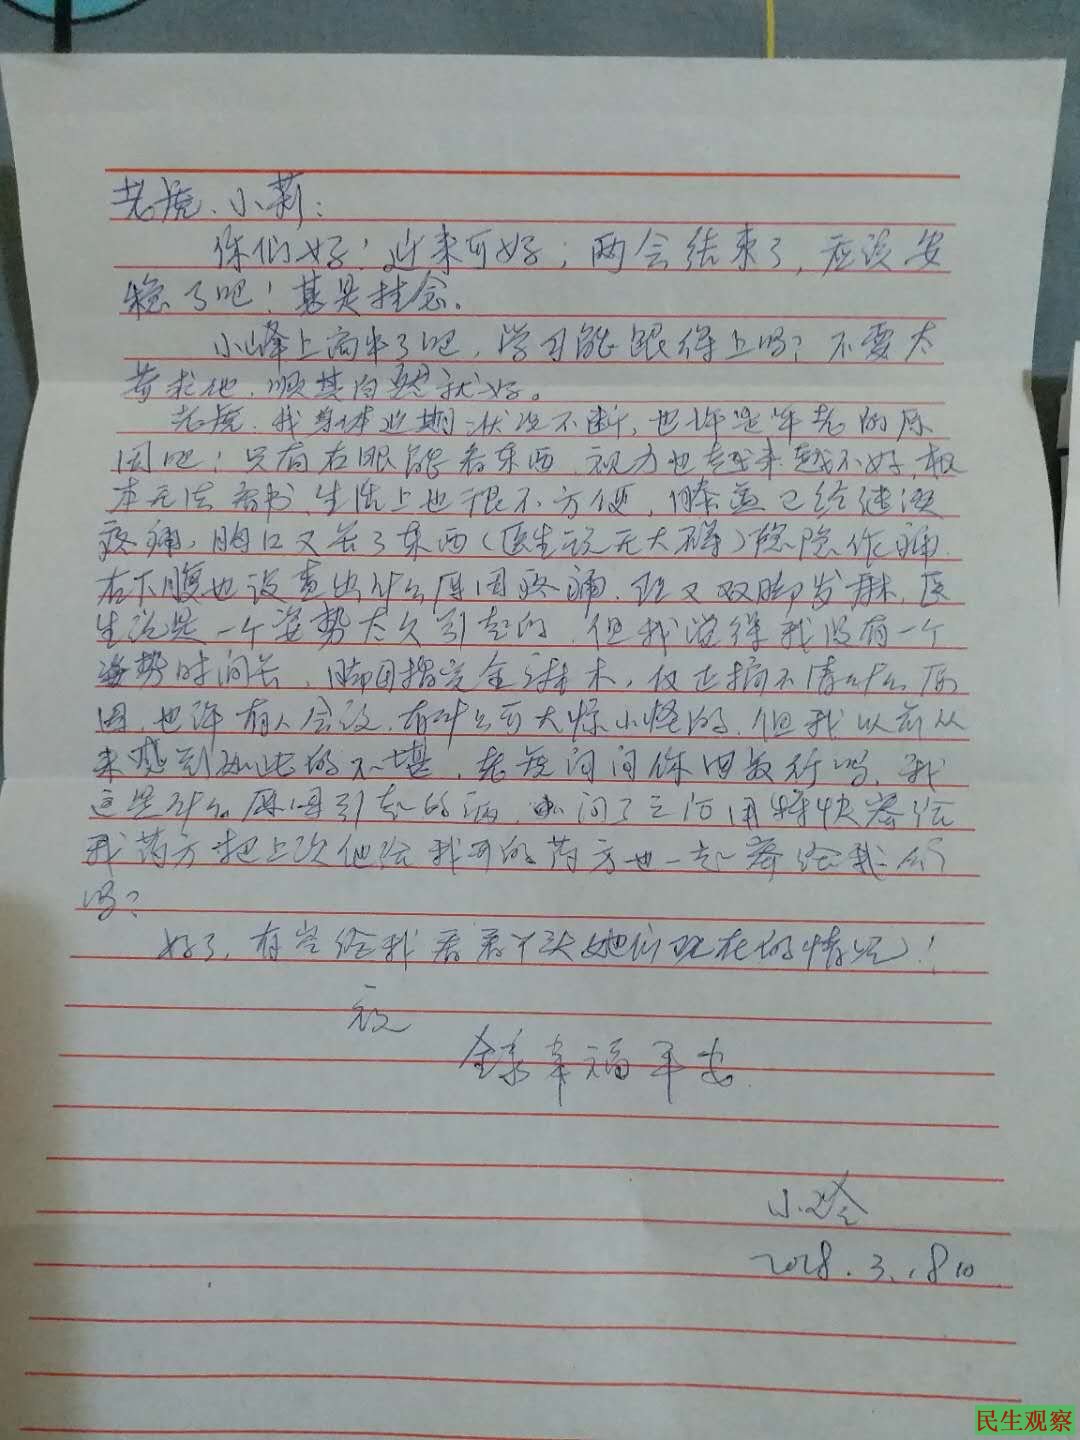 老虎、小莉：
你们好！近来可好；两会结束了，应该安
稳了吧！甚是挂念。
小峰上高中了吧，学习能跟得上吗？不要太
苛求他，顺其自然就好。
老虎，我身体近期状况不断，也许是年老的原
因吧！只有右眼能看东西，视力也越来越不好，根
本无法看书，生活上也很不方便，膝盖已经
疼痛，胸口又长了东西（医生说无大碍）隐隐作痛，
右下腹也没查出什么原因疼痛，现又双脚发麻，医
生说是一个姿势太久引起的，但我觉得我没有一个
姿势时间长，脚母指完全麻木，仅也搞不清什么原
因，也许有人会说，有什么可大惊小怪的，但我以前从
来感到如此的不堪，老虎问问你四叔行吗，我
这是什么原因引起的病，问了之后用特快寄给
我药方把上次他给我开的药方也一起寄给我
吗？
好了，有空给我看看丫头她们现在的情况！
祝
全家幸福平安
小玲
2018.3.18
民生观察